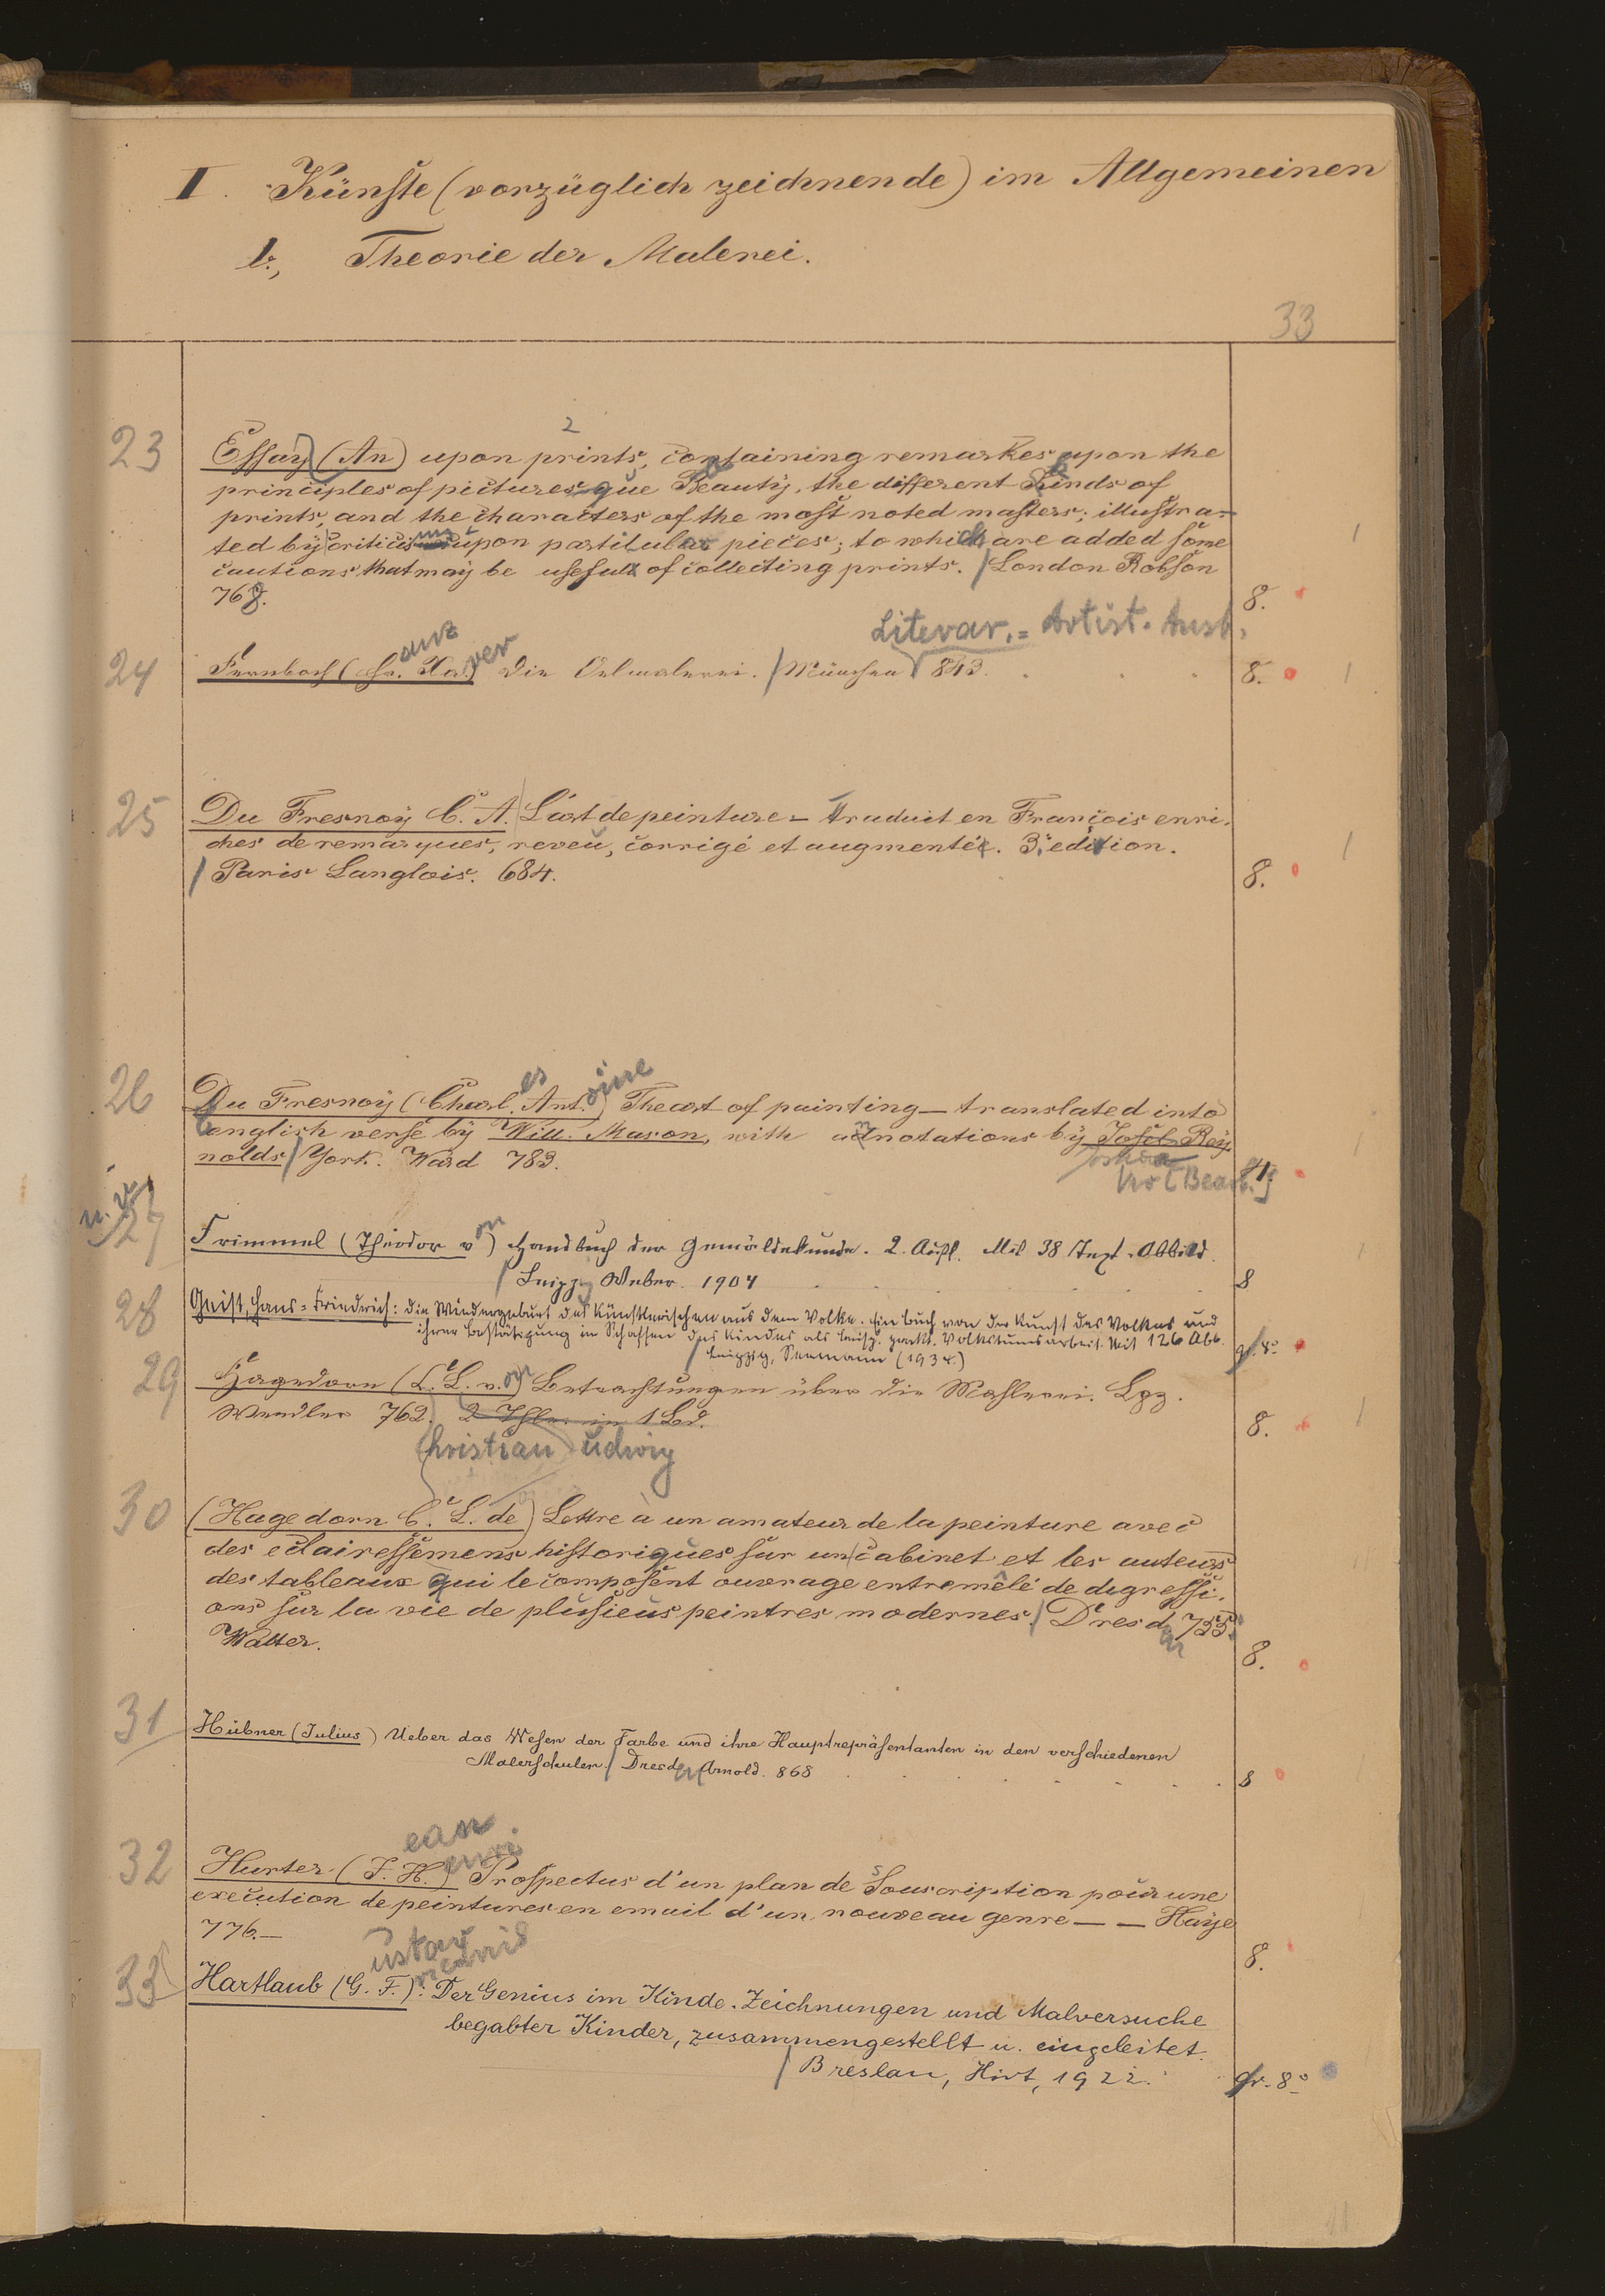 I. Künste (vorzüglich zeichnende) im Allgemeinen
b., Theorie der Malerei.
33
23 Essay (An) upon prints, containing remarkes upon the
principles of picturesque Beauty, the different Kinds of
prints, and the characters of the most noted masters; illustra-
ted by criticisms upon particular pieces; to which are added some
cautions that may be useful of collecting prints. / London Robson
768. 8.
Literar.=Artist. Anst.
24 Fernbach (Fr. Xaver) Die Oelmalerei. / München 843. 8.
25 Du Fresnoy C. A. L'art de peinture - traduit en François enri-
ches de remarques, reveu, corrigé et augmenté. 3. edition.
/ Paris Langlois. 684. 8.
26 Du Fresnoy (Charles Antoine) The art of painting — translated into
english verse by Will. Mason, with annotations by Josch Rey
nolds / York. Ward 783. 4.
27 Frimmel (Theodor von) Handbuch der Gemäldekunde. 2. Aufl. Mit 38 Text-Abbild.
/ Leipzig Weber. 1904 8
28 Geist, Hans=Friedrich: Die Wiedergeburt des Künstlerischen aus dem Volke. Ein Buch von der Kunst des Volkes und
ihrer Bestätigung im Schaffen des Kindes als beisp. prakt. Volkstumsarbeit. Mit 126 Abb.
/ Leipzig, Seemann (1934.) gr. 8°
29 Hagedorn (C. L. von) Betrachtungen über die Mahlerei. Lpz.
Wendler 762. 2 Thle. in 1 Bd. 8.
Christian Ludwig
30 (Hagedorn C. L. de) Lettre à un amateur de la peinture avec
des eclairessemens historiques sur un cabinet et les auteurs
des tableaux qui le composent ouvrage entremêlé de digressi-
ons sur la vie de plusieurs peintres modernes. / Dresden 755.
Walter. 8.
31 Hübner (Julius) Ueber das Wesen der Farbe und ihre Hauptrepräsentanten in den verschiedenen
Malerschulen. / Dresden Arnold. 868 8
32 Hurter (J. H.) Prospectus d'un plan de Souscription pour une
execution de peintures en email d'un nouveau genre — — Haye
776.— 8.
33 Hartlaub (G. F.): Der Genius im Kinde. Zeichnungen und Malversuche
begabter Kinder, zusammengestellt u. eingeleitet.
/ Breslau, Hirt, 1922. gr. 8°